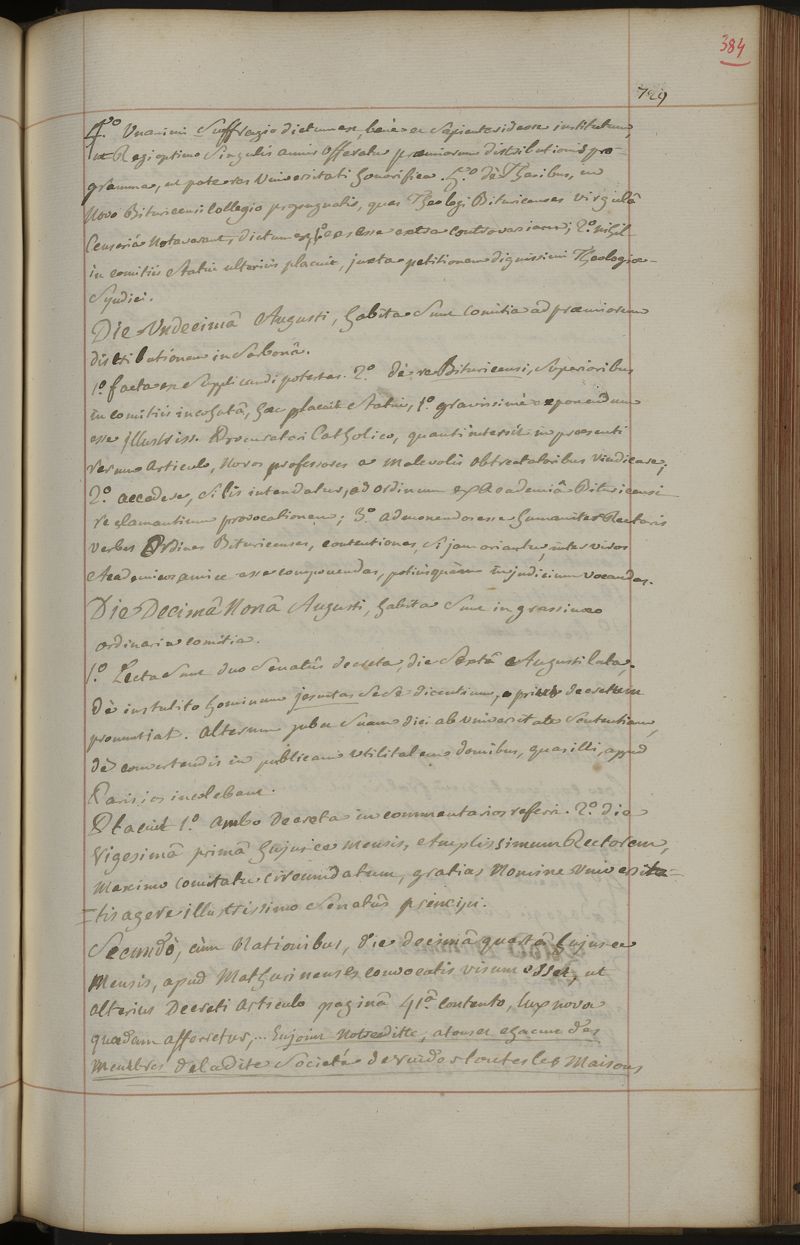 384
729
4.º Unanimi Suffragio dictum est, bene ac Sapienter ideose institutum,
ut Regi optimo Singulis annis Offeratur præmiorum distributionis pro-
gramma, ut pote res Universitati honorifica. 5.º de Thesibus, in
Novo Bituricensi Collegio propugnatis, quas Theologi Bituricenses virgulâ
Censoriâ Notaverant, dictum est, 1º eas esse extra controversiam; 2.º nihil
in comitiis Statui ulterius placuit, juxta petitionem dignissimi Theologiæ
Syndici.
Die Undecimâ Augusti, habita Sunt Comitia ad præmiorum
distributionem in Sorbonâ.
1.º facta est Supplicandi potestas. 2.º de re Bituricensi, Superioribus
in comitiis inchoatâ, hæc placuit Statui, 1.º gravissimè exponendum
esse Illustriss. Procuratori Catholico, quanti intersit in præsenti
rerum Articulo, Novos professores a malevolis obtrectatoribus vindicare;
2.º accedere, Si lis intendatur, ad ordinum ex Academiâ Bituricensi
reclamantium provocationem; 3.º admonendos esse humaniter Rectoris
verbis Ordines Bituricenses, contentiones, Si jam oriantur, inter viros
Academicos amicè esse componendas, potiusquàm in judicium vocandas.
Die Decimâ Nonâ Augusti, habita Sunt
ordinaria comitia.
1.º Lecta Sunt duo Senatûs decreta, die Sextâ Augusti lata,
de instituto hominum jesuitas Sese dicentium, prius decretum
pronuntiat. Alterum jubet Suam dici ab Universitate Sententiam,
dè convertendis in publicam utilitatem domibus, quas illi, apud
Parisios incolebant.
Placuit 1.º Ambo Decreta in commentarios referri. 2.º die
Vigesimâ primâ hujusce mensis, Amplissimum Rectorem,
Maximo comitatu circumdatum, gratias Nomine Universita-
=tis agere illustrissimo Senatûs principi.
Secundò, cùm Nationibus, die decimâ quartâ hujusce
Mensis, apud Mathurinenses convocatis visum esset, ut
alterius Decreti Articulo paginâ 41â contento, lux nova
quædam afferretur,... Enjoint Notredite, a tous et chacun des
membres de ladite Societé de vuider toutes les Maisons